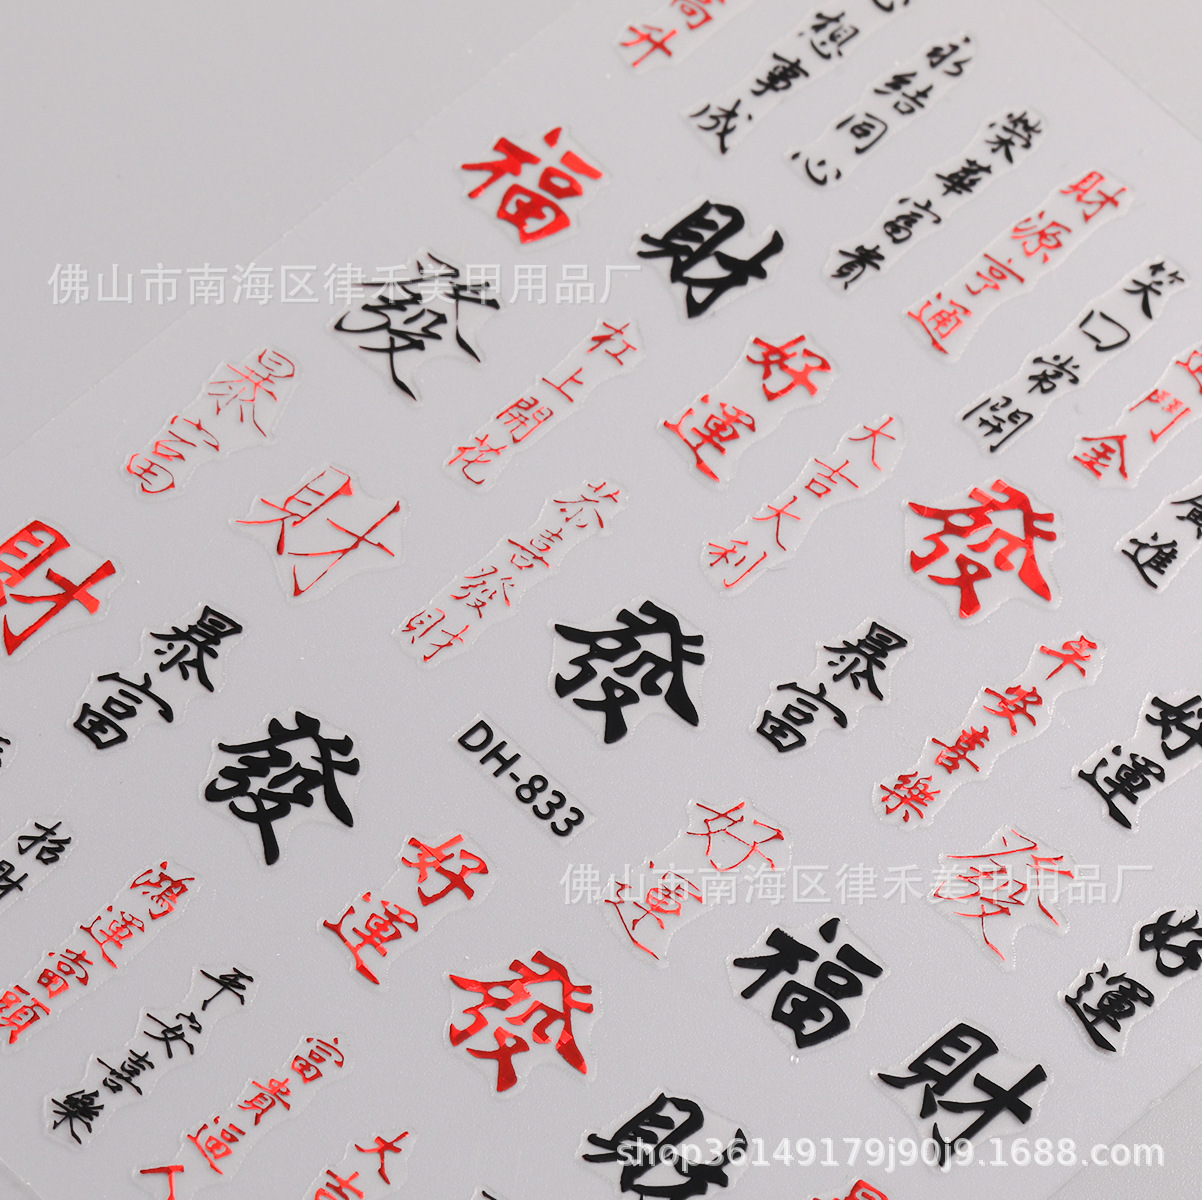 高升
想事成
永结同心
榮華富貴
財源亨通
笑口常開
門金
廣進
福
財
發
好運
杠上開花
大吉大利
發
暴富
財
恭喜發財
財
暴富
發
發
暴富
平安喜樂
好運
DH-833
好運
發
招財
鴻運當頭
好運
發
福
好運
財
平安喜樂
富貴逼人
大吉
財
佛山市南海区律禾美甲用品厂
佛山市南海区律禾美甲用品厂
shop36149179j90j9.1688.com